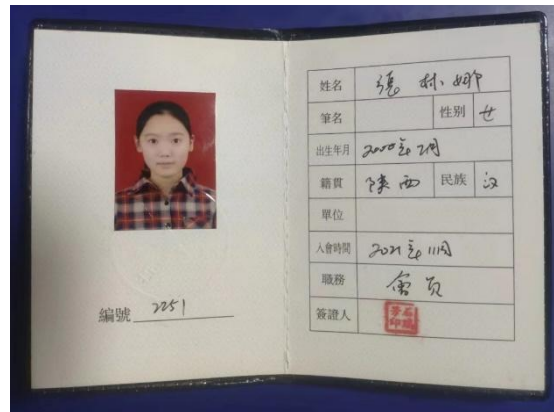 編號 2251
姓名 張林娜
筆名 性别 女
出生年月 2000年2月
籍貫 陕西 民族 汉
單位
入會時間 2021年11月
職務 會员
簽證人